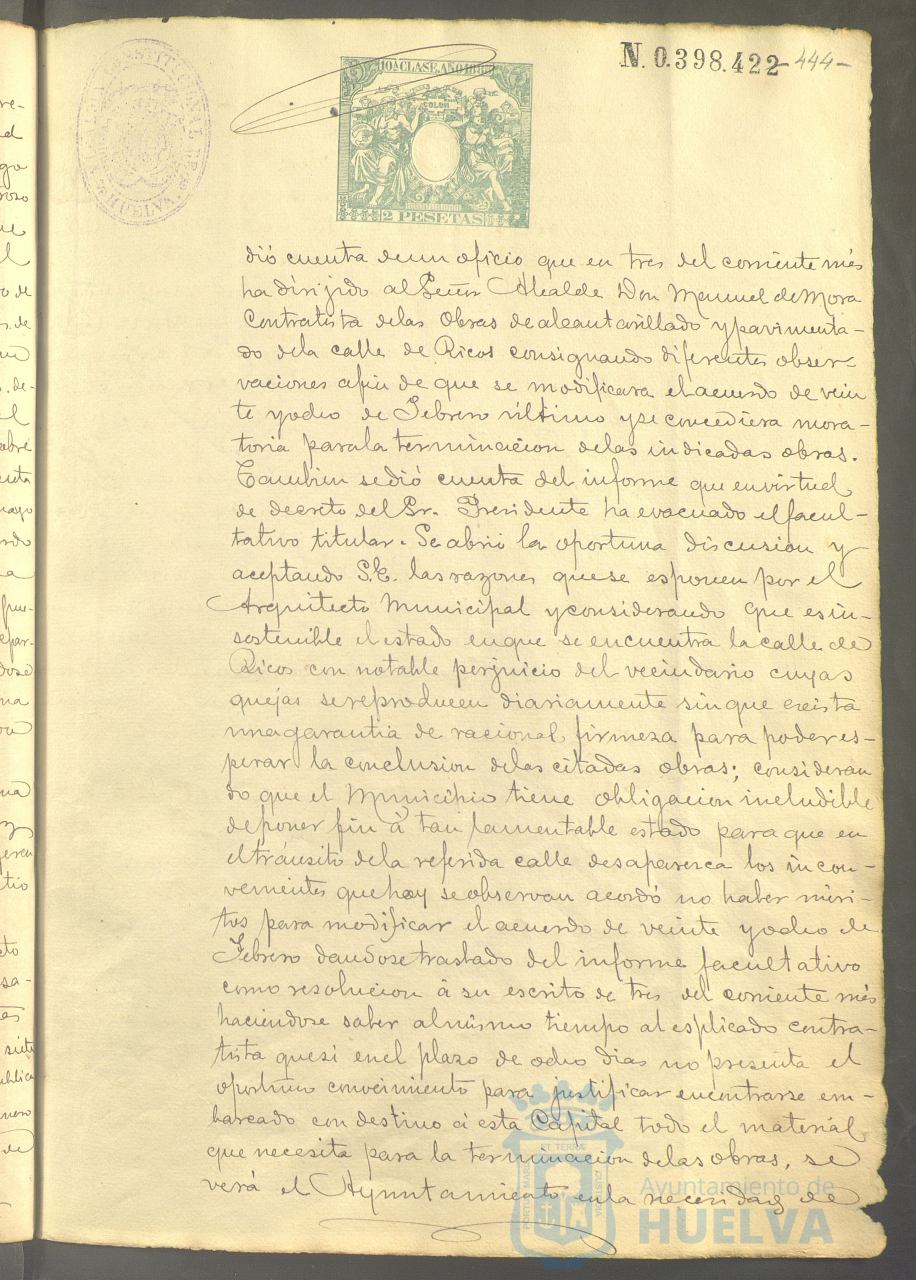 N. 0.398.422 -444-
10ª CLASE. AÑO 188
COLON
2 PESETAS
CONSTITUCIONAL DE
HUELVA
dió cuenta de un oficio que en tres del corriente més
ha dirijido al Señor Alcalde Don Manuel de Mora
Contratista de las Obras de alcantarillado y pavimenta-
do de la calle de Ricos consignando diferentes obser-
vaciones a fin de que se modificara el acuerdo de vein
te y ocho de Febrero último y se concediera mora-
toria para la terminacion de las indicadas obras.
Tambien se dió cuenta del informe que en virtud
de decreto del Sr. Presidente ha evacuado el facul-
tativo titular. Se abrió la oportuna discusion y
aceptando S.E. las razones que se esponen por el
Arquitecto Municipal y considerando que es in-
sostenible el estado en que se encuentra la calle de
Ricos con notable perjuicio del vecindario cuyas
quejas se reproducen diariamente sin que exista
una garantia de racional firmeza para poder es-
perar la conclusion de las citadas obras; consideran
do que el Municipio tiene obligacion ineludible
de poner fin á tan lamentable estado para que en
el tránsito de la referida calle desaparezca los incon-
venientes que hoy se observan acordó no haber méri-
tos para modificar el acuerdo de veinte y ocho de
Febrero dandose traslado del informe facultativo
como resolucion á su escrito de tres del corriente més
haciéndose saber al mismo tiempo al esplicado contra-
tista que si en el plazo de ocho dias no presenta el
oportuno conocimiento para justificar encontrarse em-
barcado con destino á esta Capital todo el material
que necesita para la terminacion de las obras, se
verá el Ayuntamiento en la necesidad de
Ayuntamiento de
HUELVA